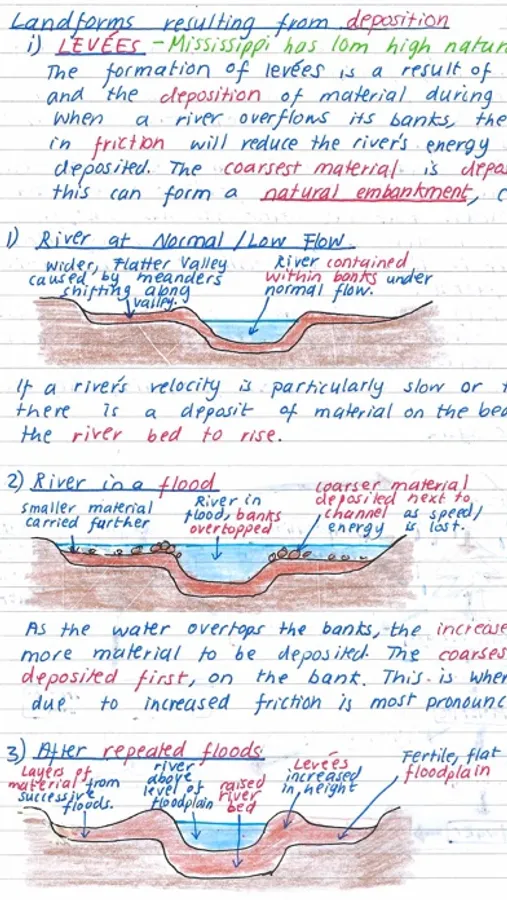 Landforms resulting from deposition
i) LEVÉES - Mississippi has 10m high natur
The formation of levées is a result of
and the deposition of material during
When a river overflows its banks, the
in friction will reduce the river's energy
deposited. The coarsest material is depo
this can form a natural embankment, c
1) River at Normal/Low Flow
Wider, Flatter Valley
caused by meanders
shifting along
valley.
River contained
within banks under
normal flow.
If a river's velocity is particularly slow or
there is a deposit of material on the bed
the river bed to rise.
2) River in a flood
smaller material
carried further
River in
flood, banks
overtopped
coarser material
deposited next to
channel as speed/
energy is lost.
As the water overtops the banks, the increase
more material to be deposited. The coarses
deposited first, on the bank. This is wher
due to increased friction is most pronounc
3) After repeated floods
Layers of
material from
successive
floods.
river
above
level of
floodplain
raised
river
bed
Levées
increased
in height
Fertile, flat
floodplain